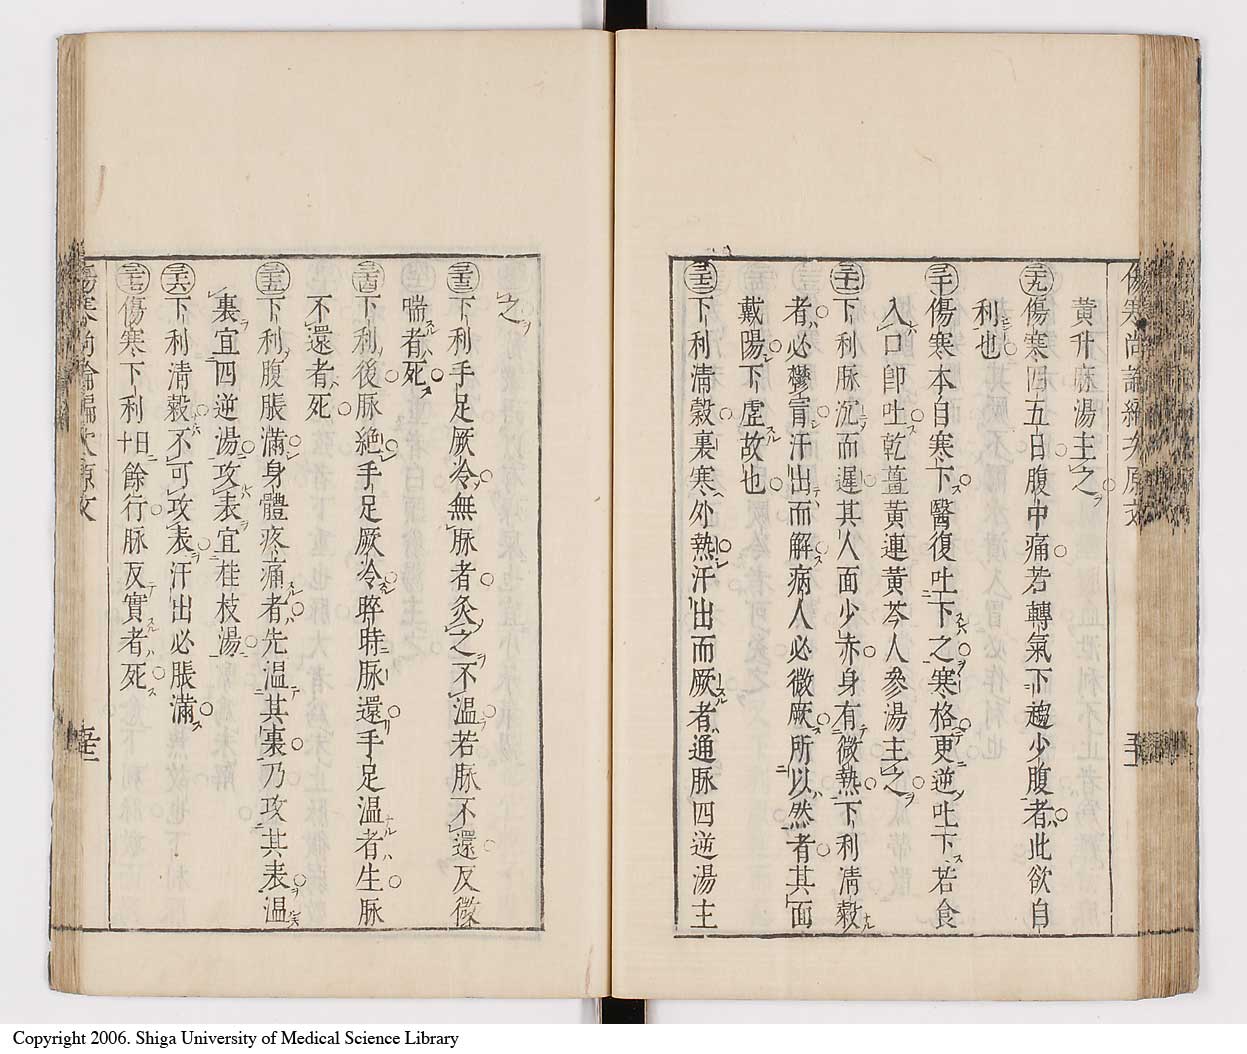 傷寒尚論編次原文
黄升麻湯主之
㊁九傷寒四五日腹中痛若轉氣下趨少腹者此欲自
利也
三十傷寒本自寒下醫復吐下之寒格更逆吐下若食
入口卽吐乾薑黄連黄芩人參湯主之
三十一下利脉沉而遲其人面少赤身有微熱下利淸穀
者必鬱冐汗出而解病人必微厥所以然者其面
戴陽下虚故也
三十二下利淸穀裏寒外熱汗出而厥者通脉四逆湯主
之
三十三下利手足厥冷無脉者灸之不温若脉不還反微
喘者死
三十四下利後脉絶手足厥冷晬時脉還手足温者生脉
不還者死
三十五下利腹脹滿身體疼痛者先温其裏乃攻其表温
裏宜四逆湯攻表宜桂枝湯
三十六下利淸穀不可攻表汗出必脹滿
三十七傷寒下利日十餘行脉反實者死
傷寒尚論編次原文
Copyright 2006. Shiga University of Medical Science Library